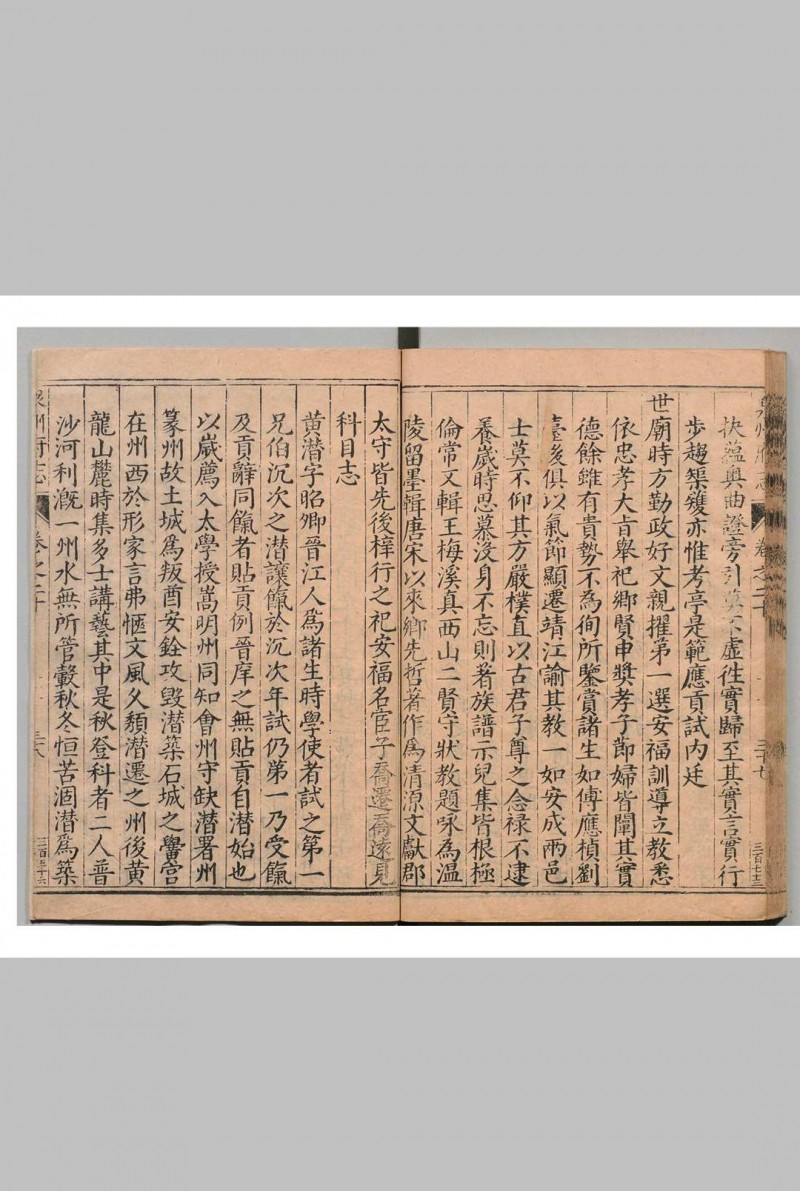 抉蘊奧曲證旁引莫不虛徃實歸至其實言實行
步趨榘矱亦惟考亭是範應貢試內廷
世廟時方勤政好文親擢第一選安福訓導立教悉
依忠孝大肯舉祀鄉賢申獎孝子節婦皆闡其實
德餘雖有貴勢不為徇所鑒賞諸生如傅應楨劉
臺後俱以氣節顯遷靖江諭其教一如安成兩邑
士莫不仰其方嚴樸直以古君子尊之念禄不逮
養歲時思慕沒身不忘則著族譜示兒集皆根極
倫常又輯王梅溪真西山二賢守狀教題咏為溫
陵留墨輯唐宋以來鄉先哲著作為清源文獻郡
太守皆先後梓行之祀安福名宦子喬遷喬遠見
科目志
黃潛字昭卿晉江人為諸生時學使者試之第一
兄伯沉次之潛讓餼於沉次年試仍第一乃受餼
及貢辭同餼者貼貢例晉庠之無貼貢自潛始也
以歲薦入太學授嵩明州同知會州守缺潛署州
篆州故土城為叛酋安銓攻毀潛築石城之黌宮
在州西於形家言弗愜文風久頹潛遷之州後黃
龍山麓時集多士講藝其中是秋登科者二人普
沙河利溉一州水無所管轂秋冬恒苦涸潛為築
泉州府志
卷之二十
三十七
三百七十三
泉州府志
卷之二十
三十八
三百五十六